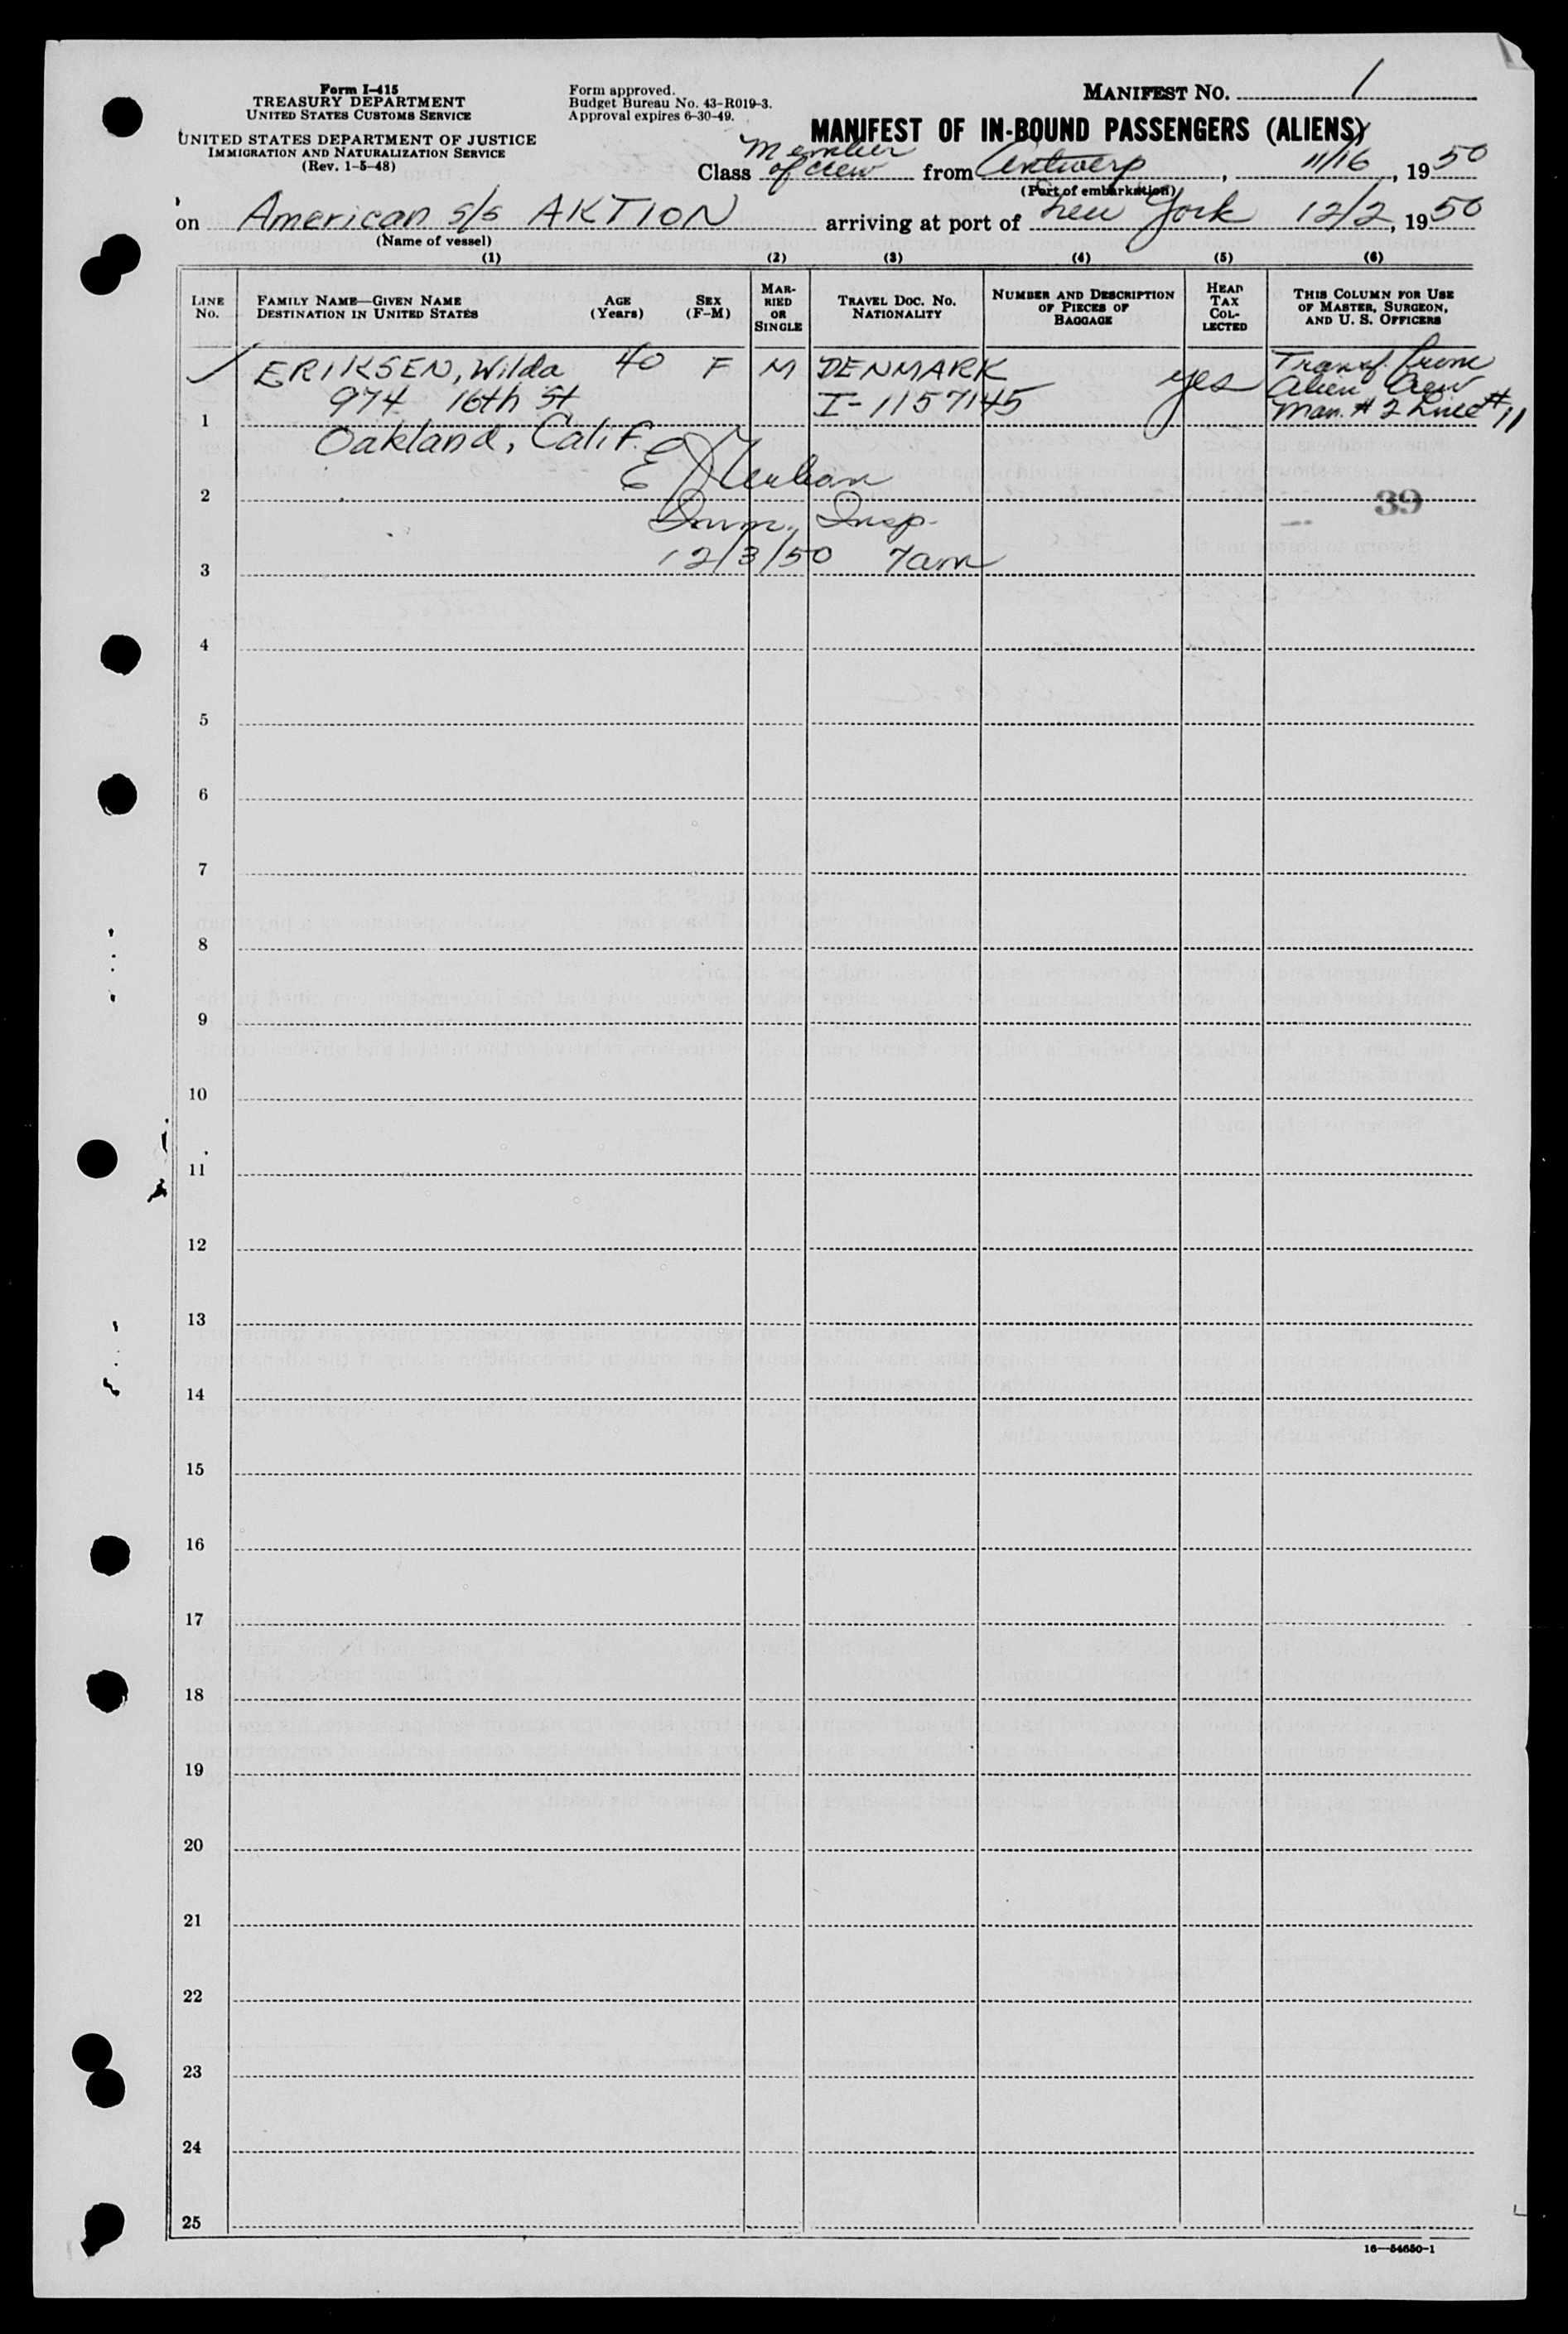 Form I-415
TREASURY DEPARTMENT
UNITED STATES CUSTOMS SERVICE
UNITED STATES DEPARTMENT OF JUSTICE
IMMIGRATION AND NATURALIZATION SERVICE
(Rev. 1-5-48)
Form approved.
Budget Bureau No. 43-R019-3.
Approval expires 6-30-49.
MANIFEST NO. 1
MANIFEST OF IN-BOUND PASSENGERS (ALIENS)
Class Member of crew from Antwerp, 11/16, 1950
(Port of embarkation)
on American s/s AKTION arriving at port of New York 12/2, 1950
(Name of vessel)
(1) (2) (3) (4) (5) (6)
LINE No.
FAMILY NAME—GIVEN NAME
DESTINATION IN UNITED STATES
AGE (Years)
SEX (F-M)
MARRIED OR SINGLE
TRAVEL DOC. NO. NATIONALITY
NUMBER AND DESCRIPTION OF PIECES OF BAGGAGE
HEAD TAX COLLECTED
THIS COLUMN FOR USE OF MASTER, SURGEON, AND U. S. OFFICERS
ERIKSEN, Wilda 40 F M DENMARK yes Transf. from
974 16th St I-1157145 Alien Crew
1 Man. # 2 Line #11
Oakland, Calif.
2 39
Imm. Insp.
12/3/50 7am
3
4
5
6
7
8
9
10
11
12
13
14
15
16
17
18
19
20
21
22
23
24
25
16—54650-1